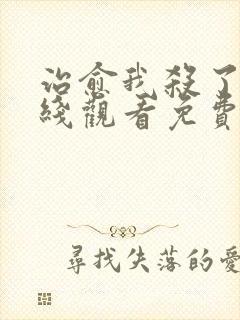 治愈我殺了
綫觀看免費
尋找失落的愛